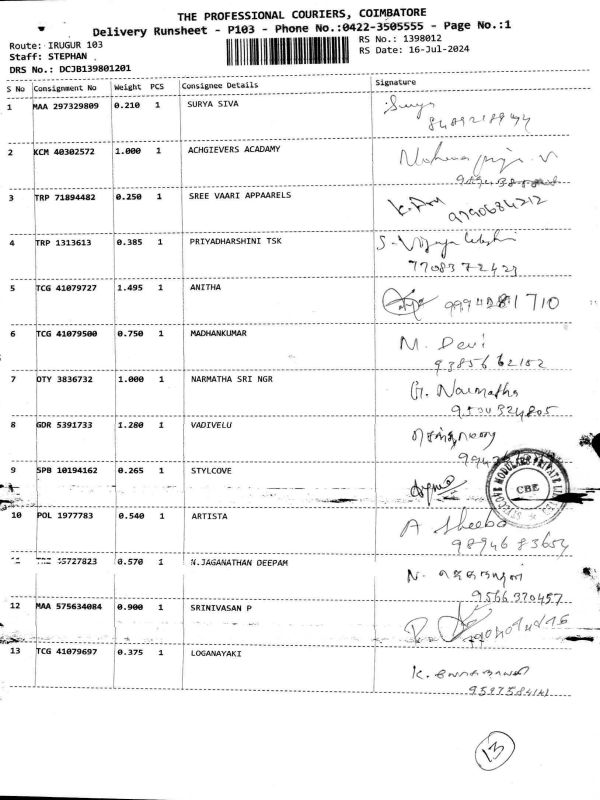 THE PROFESSIONAL COURIERS, COIMBATORE
Delivery Runsheet - P103 - Phone No.:0422-3505555 - Page No.:1
Route: IRUGUR 103
RS No.: 1398012
Staff: STEPHAN
RS Date: 16-Jul-2024
DRS No.: DCJB139801201
S No Consignment No Weight PCS Consignee Details Signature
1 MAA 297329809 0.210 1 SURYA SIVA Surya
2 KCM 40302572 1.000 1 ACHGIEVERS ACADAMY
3 TRP 71894482 0.250 1 SREE VAARI APPAARELS
9790684212
4 TRP 1313613 0.385 1 PRIYADHARSHINI TSK
7708372423
5 TCG 41079727 1.495 1 ANITHA
6 TCG 41079500 0.750 1 MADHANKUMAR M. Devi
9385662152
7 OTY 3836732 1.000 1 NARMATHA SRI NGR G. Narmatha
8 GDR 5391733 1.280 1 VADIVELU
9 SPB 10194162 0.265 1 STYLCOVE
CBE
10 POL 1977783 0.540 1 ARTISTA A Sheeba
9894683654
0.570 1 N.JAGANATHAN DEEPAM
9566370457
12 MAA 575634084 0.900 1 SRINIVASAN P
13 TCG 41079697 0.375 1 LOGANAYAKI K. லோகநாயகி
13